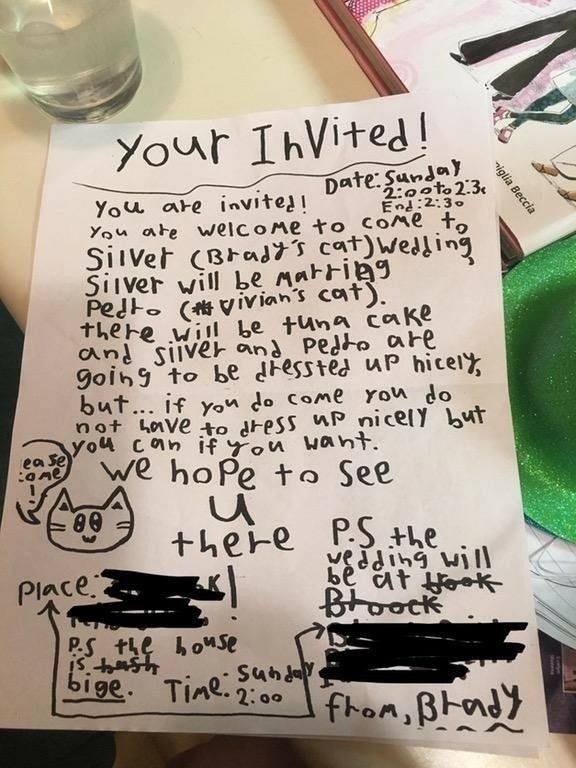 Your Invited!
Date: Sunday
2:00 to 2:30
End: 2:30
You are invited!
You are welcome to come to
Silver (Brady's cat) Wedding,
Silver will be Marring
Pedro (vivian's cat).
there will be tuna cake
and silver and Pedro are
going to be dressted up nicely,
but... if you do come you do
not have to dress up nicely but
you can if you want.
ease
ome
!
We hope to see
u
there
P.S the
wedding will
be at
Broock
Place: K!
P.S the house
is bige.
Time: Sunday
2:00
from, Brady
miglia Beccia